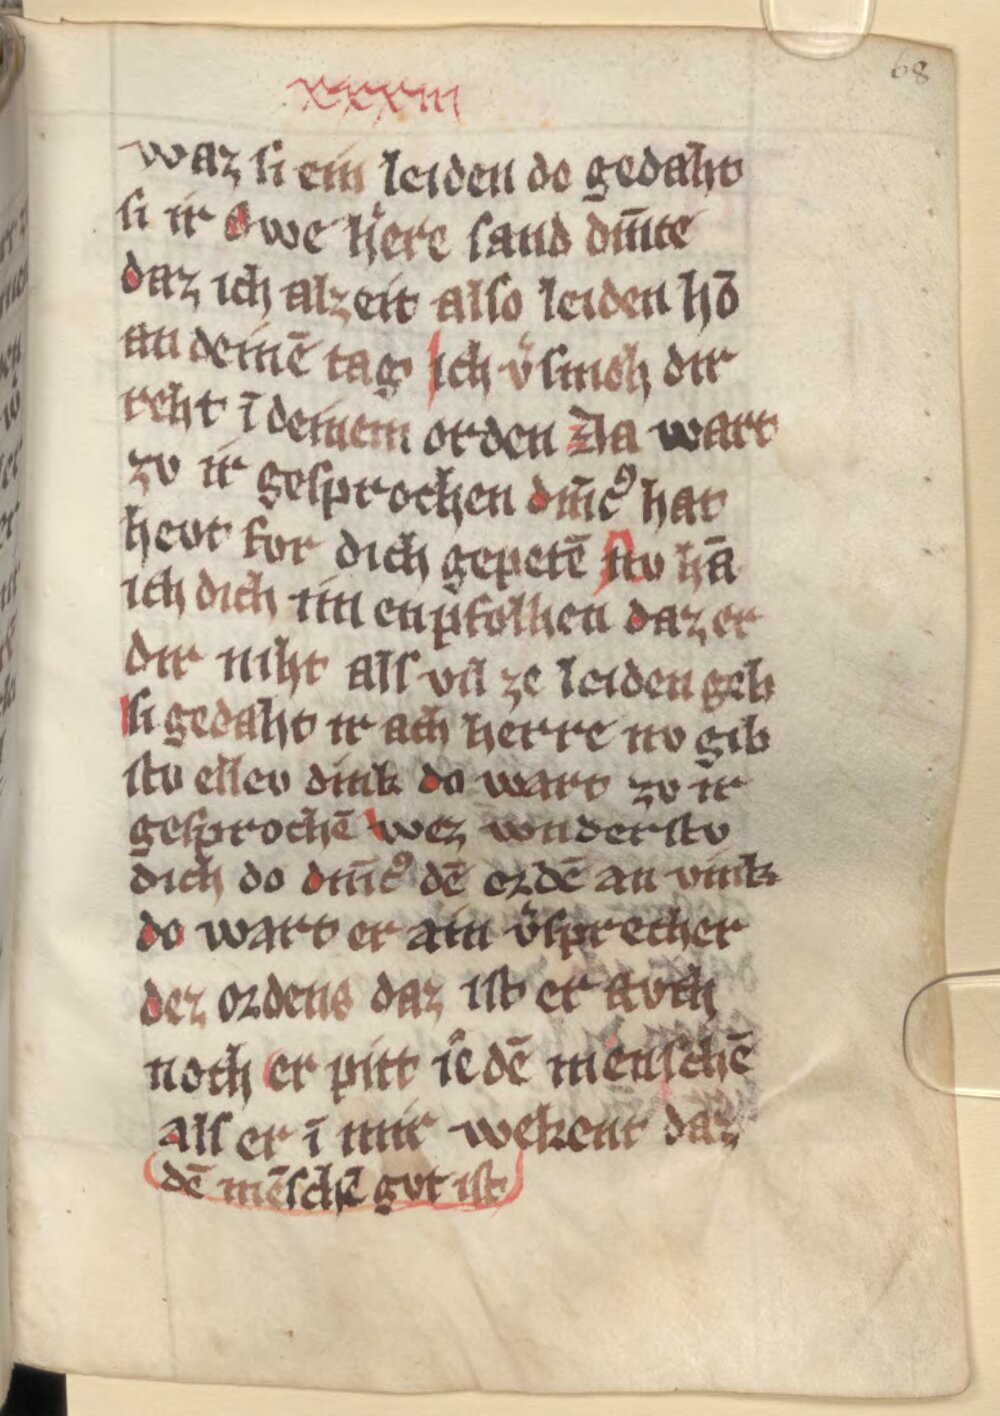 68
xxxiii
waz si ein leiden do gedaht
si ir Owe here sand dm̄ice
daz ich alzeit also leiden hō
an deinē tag Ich v̓smeh dir
reht ī deinem orden Da wart
zv ir gesprochen dm̄icꝰ hat
hevt fvr dich gepetē Nv hā
ich dich im enpfolhen daz er
dir niht als vil ze leiden geb
si gedaht ir ach herre nv gib
stv ellev dink do wart zv ir
gesprochē wez wnderstv
dich do dm̄icꝰ dē ordē an vink
do wart er ain v̓sprecher
dez ordens daz ist er avch
noch er pitt ie dē menschē
als er ī mir wekent daz
dē mēschē gvt ist